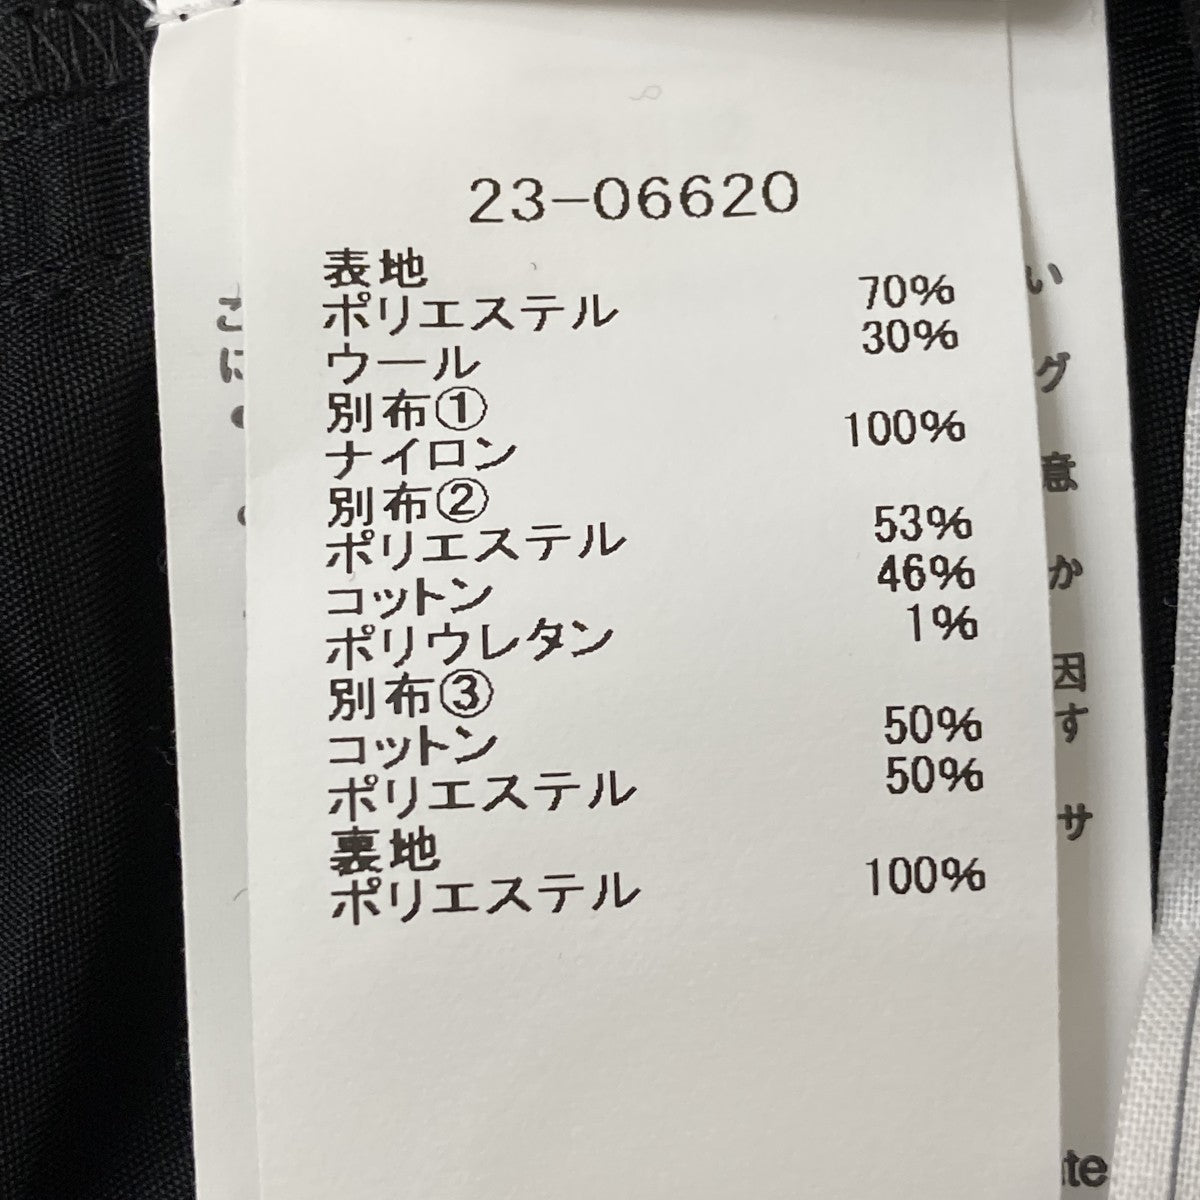 23-06620
表地
ポリエステル 70%
ウール 30%
別布①
ナイロン 100%
別布②
ポリエステル 53%
コットン 46%
ポリウレタン 1%
別布③
コットン 50%
ポリエステル 50%
裏地
ポリエステル 100%
い
グ
意
か
因
す
サ
こ
に